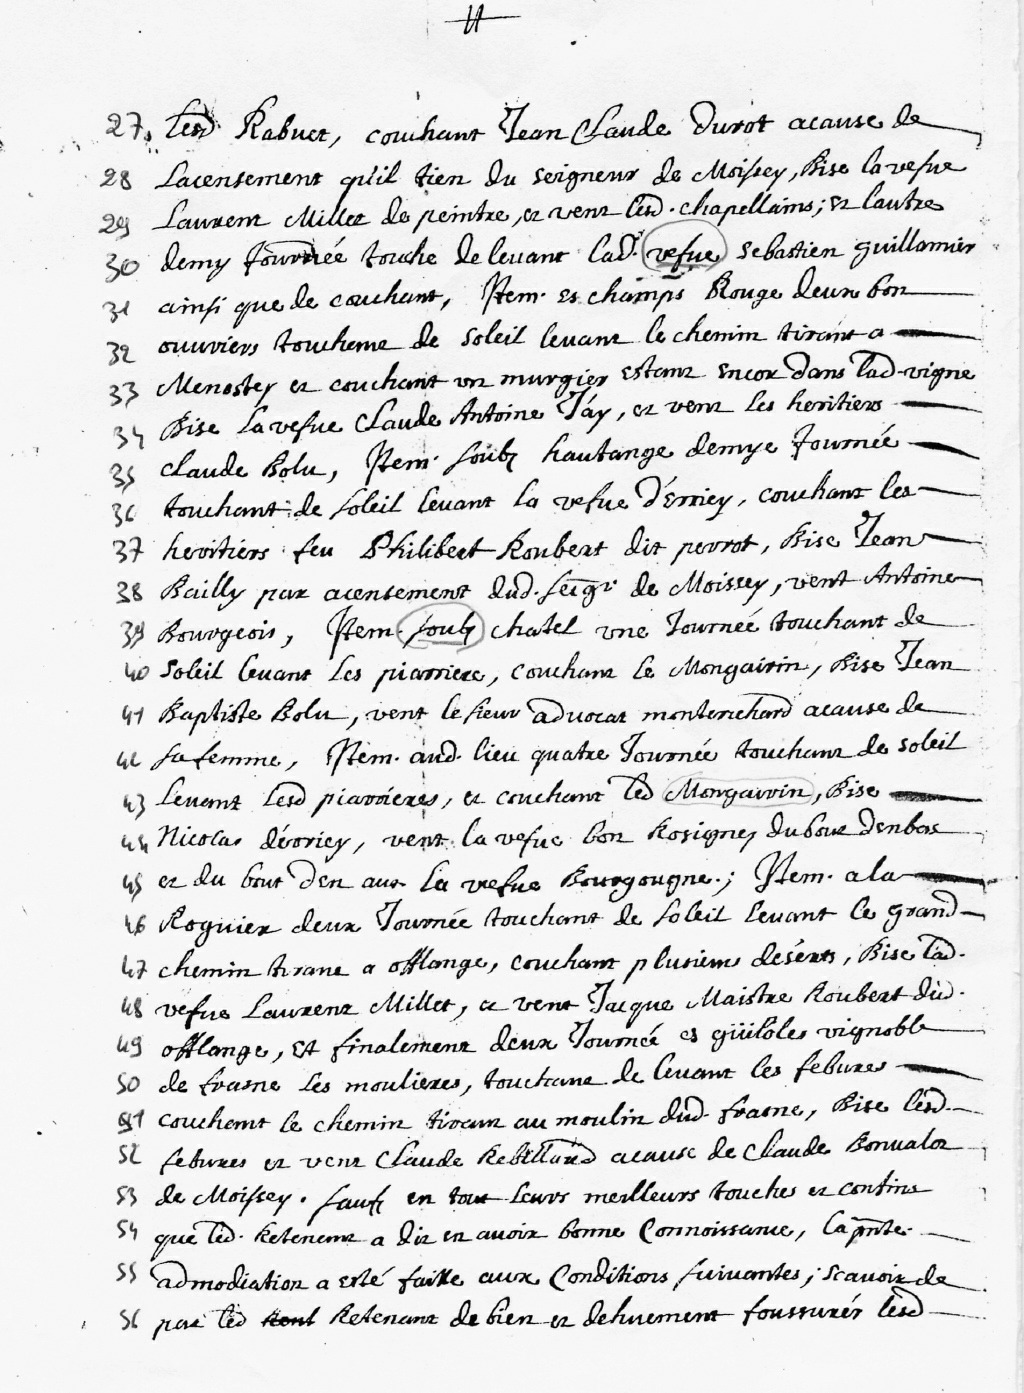 11
27. Lesd Rabuet, couchant Jean Claude Durot acause de
28 Lacensement qu'il tien du seigneur de Moissey, Bise la vefue
29 Laurent Millet de peintre, et vent lesd. chapellains; et lautre
30 demy Journée touche de levant lad. vefue sebastien guillamier
31 ainsi que de couchant, Item. es champs Rouge deux bon
32 ouuriers touchent de soleil levant le chemin tirant a
33 Menostey et couchant un murgier estant encor dans lad. vigne
34 Bise la vefue Claude Antoine Jay, et vent les heritiers
35 claude Bolu, Item. soub hautange demye Journée
36 touchant de soleil levant la vefue d'Erriey, couchant les
37 heritiers feu Philibert Roubert dit perrot, Bise Jean
38 Bailly par acensement dud. seigr. de Moissey, vent Antoine
39 Bourgeois, Item. soub chatel une Journée touchant de
40 soleil levant les piarriere, couchant le Mongairin, Bise Jean
41 Baptiste Bolu, vent le sieur advocat monterichard acause de
42 sa femme, Item. aud. lieu quatre Journée touchant de soleil
43 Levant Lesd piarrieres, et couchant led Mongairin, Bise
44 Nicolas d'érriey, vent la vefue bon Rosigney du bout denbas
45 et du bout den aut la vefue Bourgougne.; Item. a la
46 Roguier deux Journée touchant de soleil levant le grand
47 chemin tirant a offlange, couchant plusieurs desérts, Bise lad.
48 vefue Laurent Millet, et vent Jacque Maistre Roubert dud.
49 offlange, Et finalement deux Journée es vignoble
50 de frasne Les moulieres, touchant de levant les febures
51 couchant le chemin tirant au moulin dud. frasne, Bise lesd.
52 febures et vent Claude Rebillard acause de Claude Bonvalot
53 de Moissey. sauf en tout Leurs meilleurs touches et confins
54 que led. Retenant a dit en avoir bonne Connoissance, la pnte.
55 admodiation a esté faitte aux Conditions suivantes; scavoir de
56 par led Retenant de bien et dehuement foussurér lesd